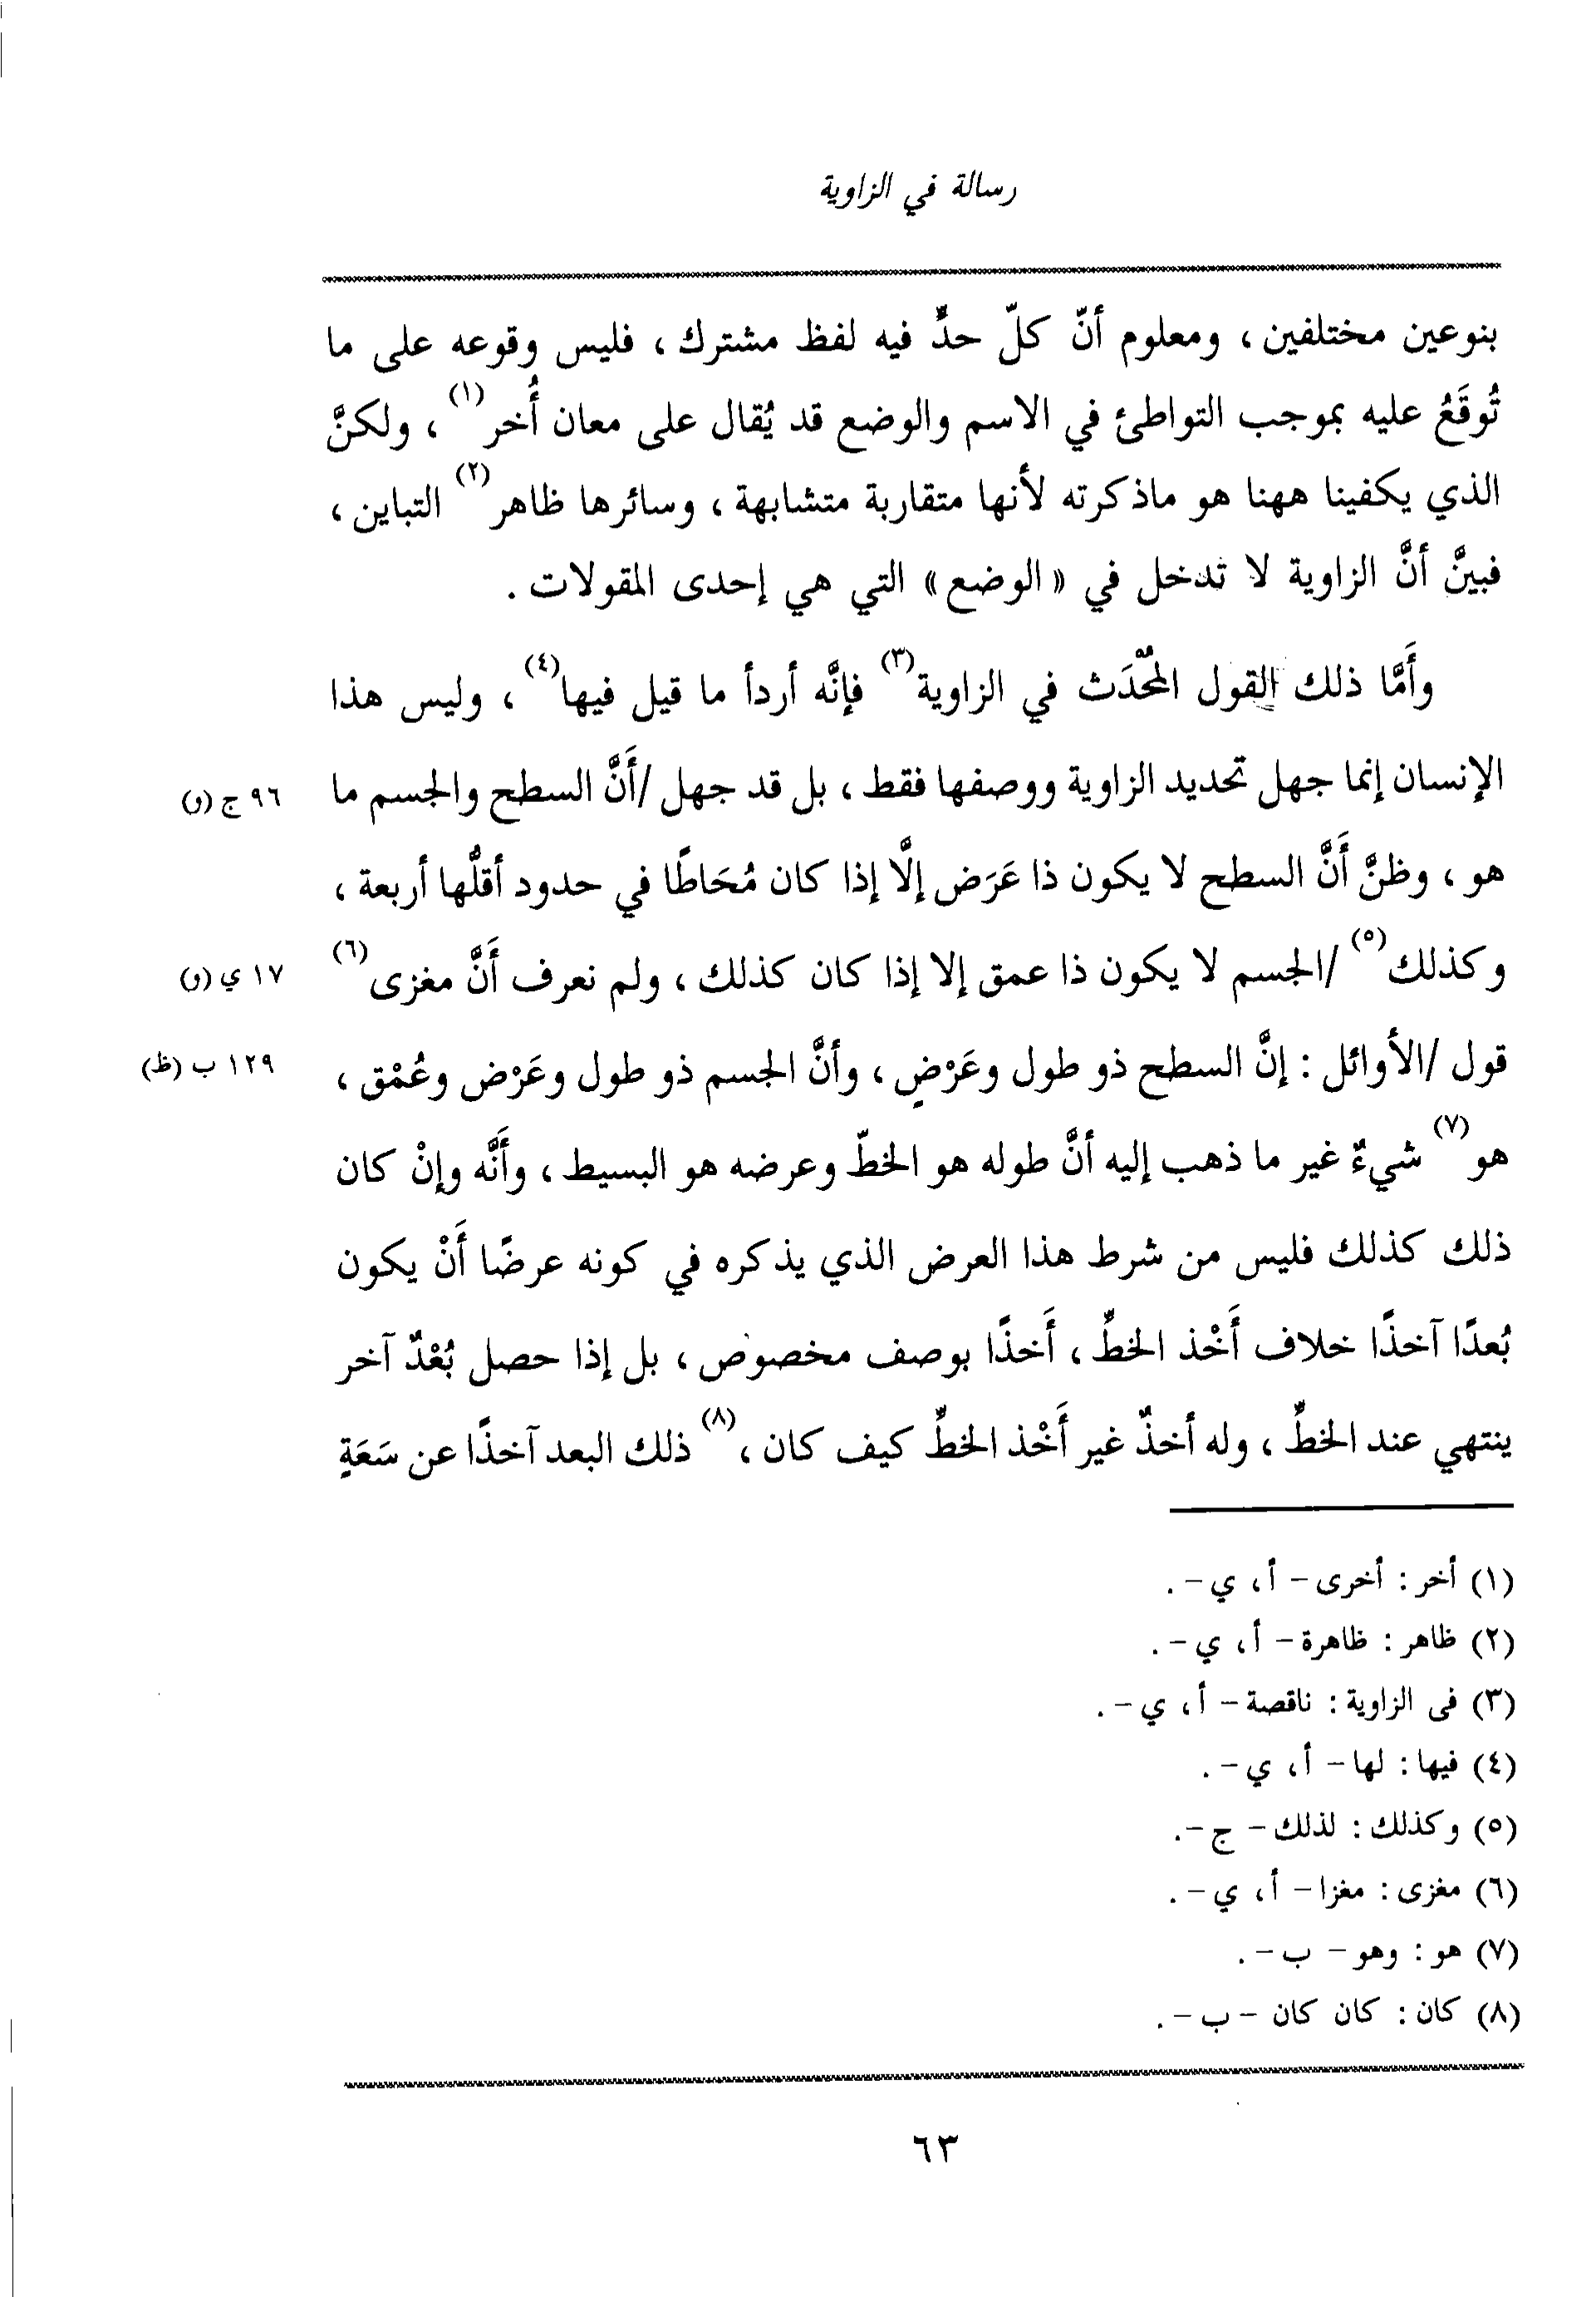 رسالة في الزاوية
بنوعين مختلفين ، ومعلوم أنّ كلّ حدٍّ فيه لفظ مشترك ، فليس وقوعه على ما
تُوقَعُ عليه بموجب التواطئ في الاسم والوضع قد يُقال على معان أُخر(١) ، ولكنَّ
الذي يكفينا ههنا هو ماذكرته لأنها متقاربة متشابهة ، وسائرها ظاهر(٢) التباين ،
فبينَّ أنَّ الزاوية لا تدخل في « الوضع » التي هي إحدى المقولات .
وأَمَّا ذلك القول المحْدَث في الزاوية(٣) فإنَّه أردأ ما قيل فيها(٤) ، وليس هذا
الإنسان إنما جهل تحديد الزاوية ووصفها فقط ، بل قد جهل /أَنَّ السطح والجسم ما
٩٦ ج (و)
هو ، وظنَّ أَنَّ السطح لا يكون ذا عَرَض إلَّا إذا كان مُحَاطًا في حدود أقلُّها أربعة ،
وكذلك(٥) /الجسم لا يكون ذا عمق إلا إذا كان كذلك ، ولم نعرف أَنَّ مغزى(٦)
١٧ ي (و)
قول /الأوائل : إنَّ السطح ذو طول وعَرْضٍ ، وأنَّ الجسم ذو طول وعَرْض وعُمْق ،
١٢٩ ب (ظ)
هو(٧) شيءٌ غير ما ذهب إليه أنَّ طوله هو الخطّ وعرضه هو البسيط ، وأَنَّه وإنْ كان
ذلك كذلك فليس من شرط هذا العرض الذي يذكره في كونه عرضًا أَنْ يكون
بُعدًا آخذًا خلاف أَخْذ الخطِّ ، أَخذًا بوصف مخصوص ، بل إذا حصل بُعْدٌ آخر
ينتهي عند الخطِّ ، وله أخذٌ غير أَخْذ الخطِّ كيف كان ،(٨) ذلك البعد آخذًا عن سَعَةٍ
(١) أخر : أخرى – أ ، ي – .
(٢) ظاهر : ظاهرة – أ ، ي – .
(٣) فى الزاوية : ناقصة – أ ، ي – .
(٤) فيها : لها – أ ، ي – .
(٥) وكذلك : لذلك – ج – .
(٦) مغزى : مغزا – أ ، ي – .
(٧) هو : وهو – ب – .
(٨) كان : كان كان – ب – .
٦٣